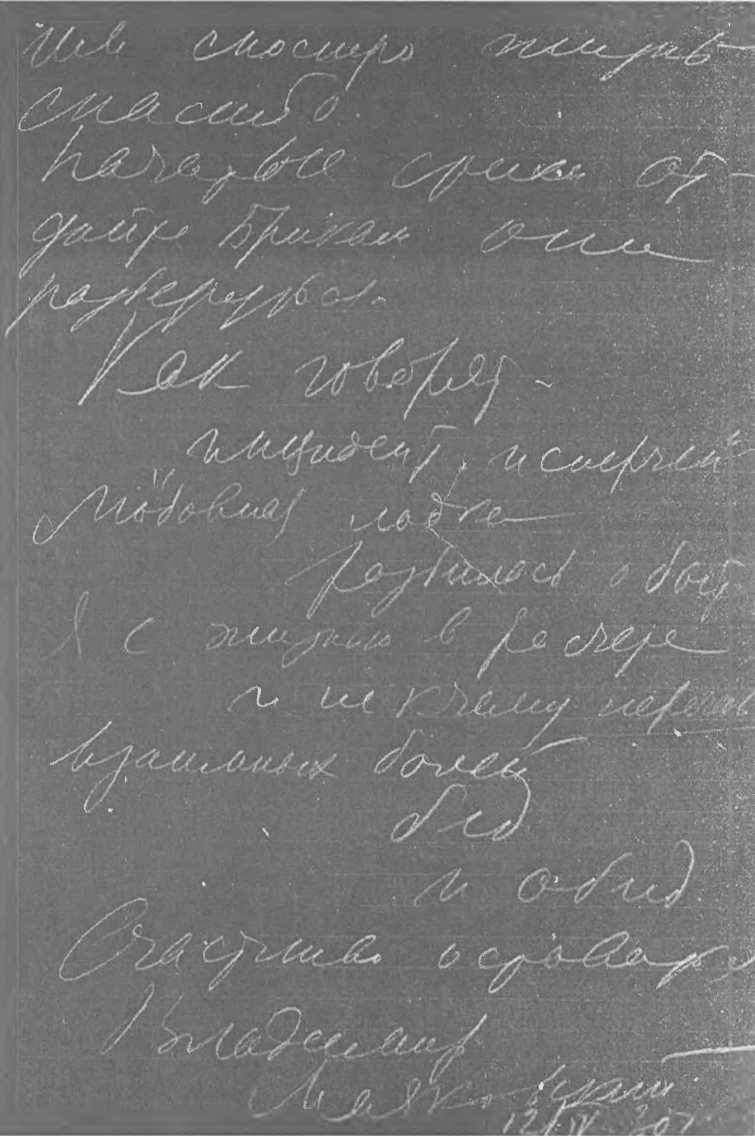 им сносную жизнь
спасибо.
Начатые стихи от-
дайте Брикам они
разберутся.
Как говорят –
"инцидент исперчен"
Любовная лодка
разбилась о быт
Я с жизнью в расчете
и не к чему перечень
взаимных болей
бед
и обид
Счастливо оставаться
Владимир
Маяковский
12/IV 30 г